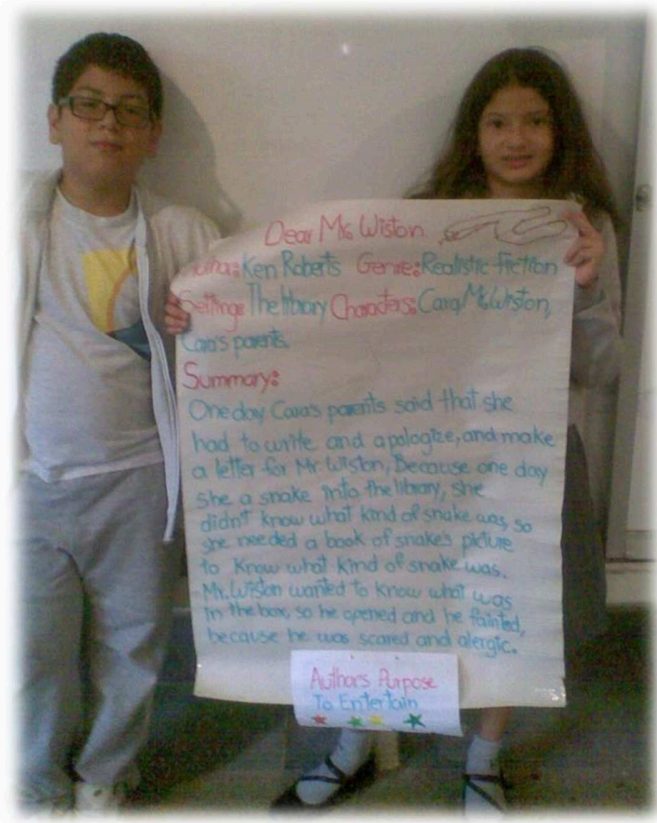 Dear Mr. Wiston
Author: Ken Roberts Genre: Realistic Fiction
Setting: The library Characters: Cara, Mr. Wiston,
Cara's parents.
Summary:
One day Cara's parents said that she
had to write and apologize, and make
a letter for Mr. Wiston, Because one day
she a snake into the library, she
didn't know what kind of snake was, so
she needed a book of snake's picture
to know what kind of snake was.
Mr. Wiston wanted to know what was
in the box, so he opened and he fainted,
because he was scared and alergic.
Authors Purpose
To Entertain